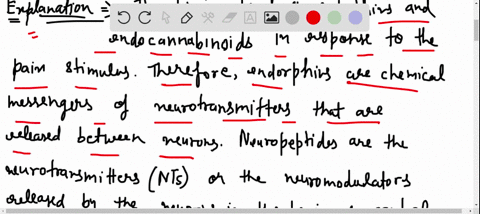 Explanation :-
thins and
endocannabinoids in response to the
pain stimulus. Therefore, endorphins are chemical
messengers of neurotransmitters that are
released between neurons. Neuropeptides are the
neurotransmitters (NTs) or the neuromodulators
released by the